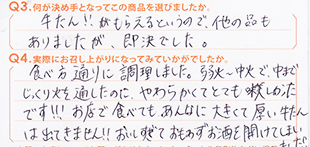 Q3.何が決め手となってこの商品を選びましたか。
牛たん!!がもらえるというので、他の品も
ありましたが、即決でした。
Q4.実際にお召し上がりになってみていかがでしたか。
食べ方通りに調理しました。弱火~中火で、中まで
じっくり火を通したのに、やわらかくてとても
です!!!お店で食べてもあんなに大きくて厚い牛たん
は出てきません!!おいしすぎておもわずお酒も開けてしまい